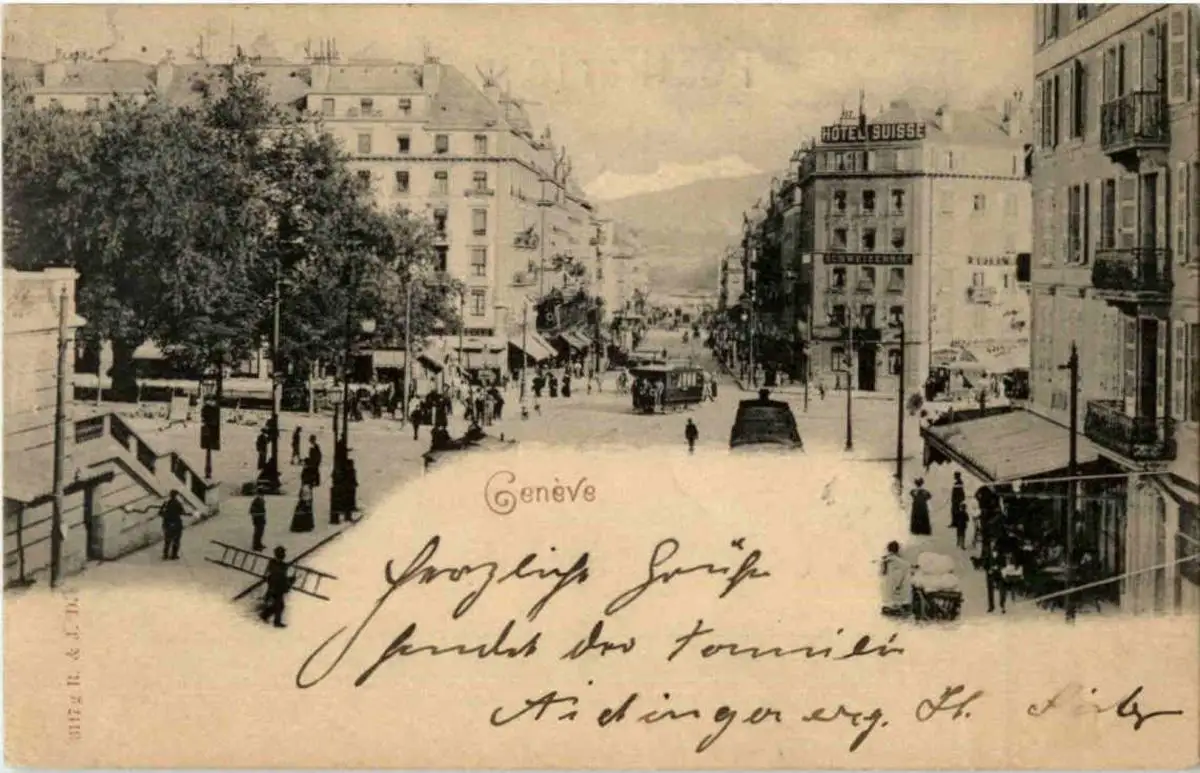 HÔTEL SUISSE
SCHWEIZERHOF
Genève
herzliche Grüße
sendet der Familie
Aidinger erg. H.
3117 g R. & J. D.